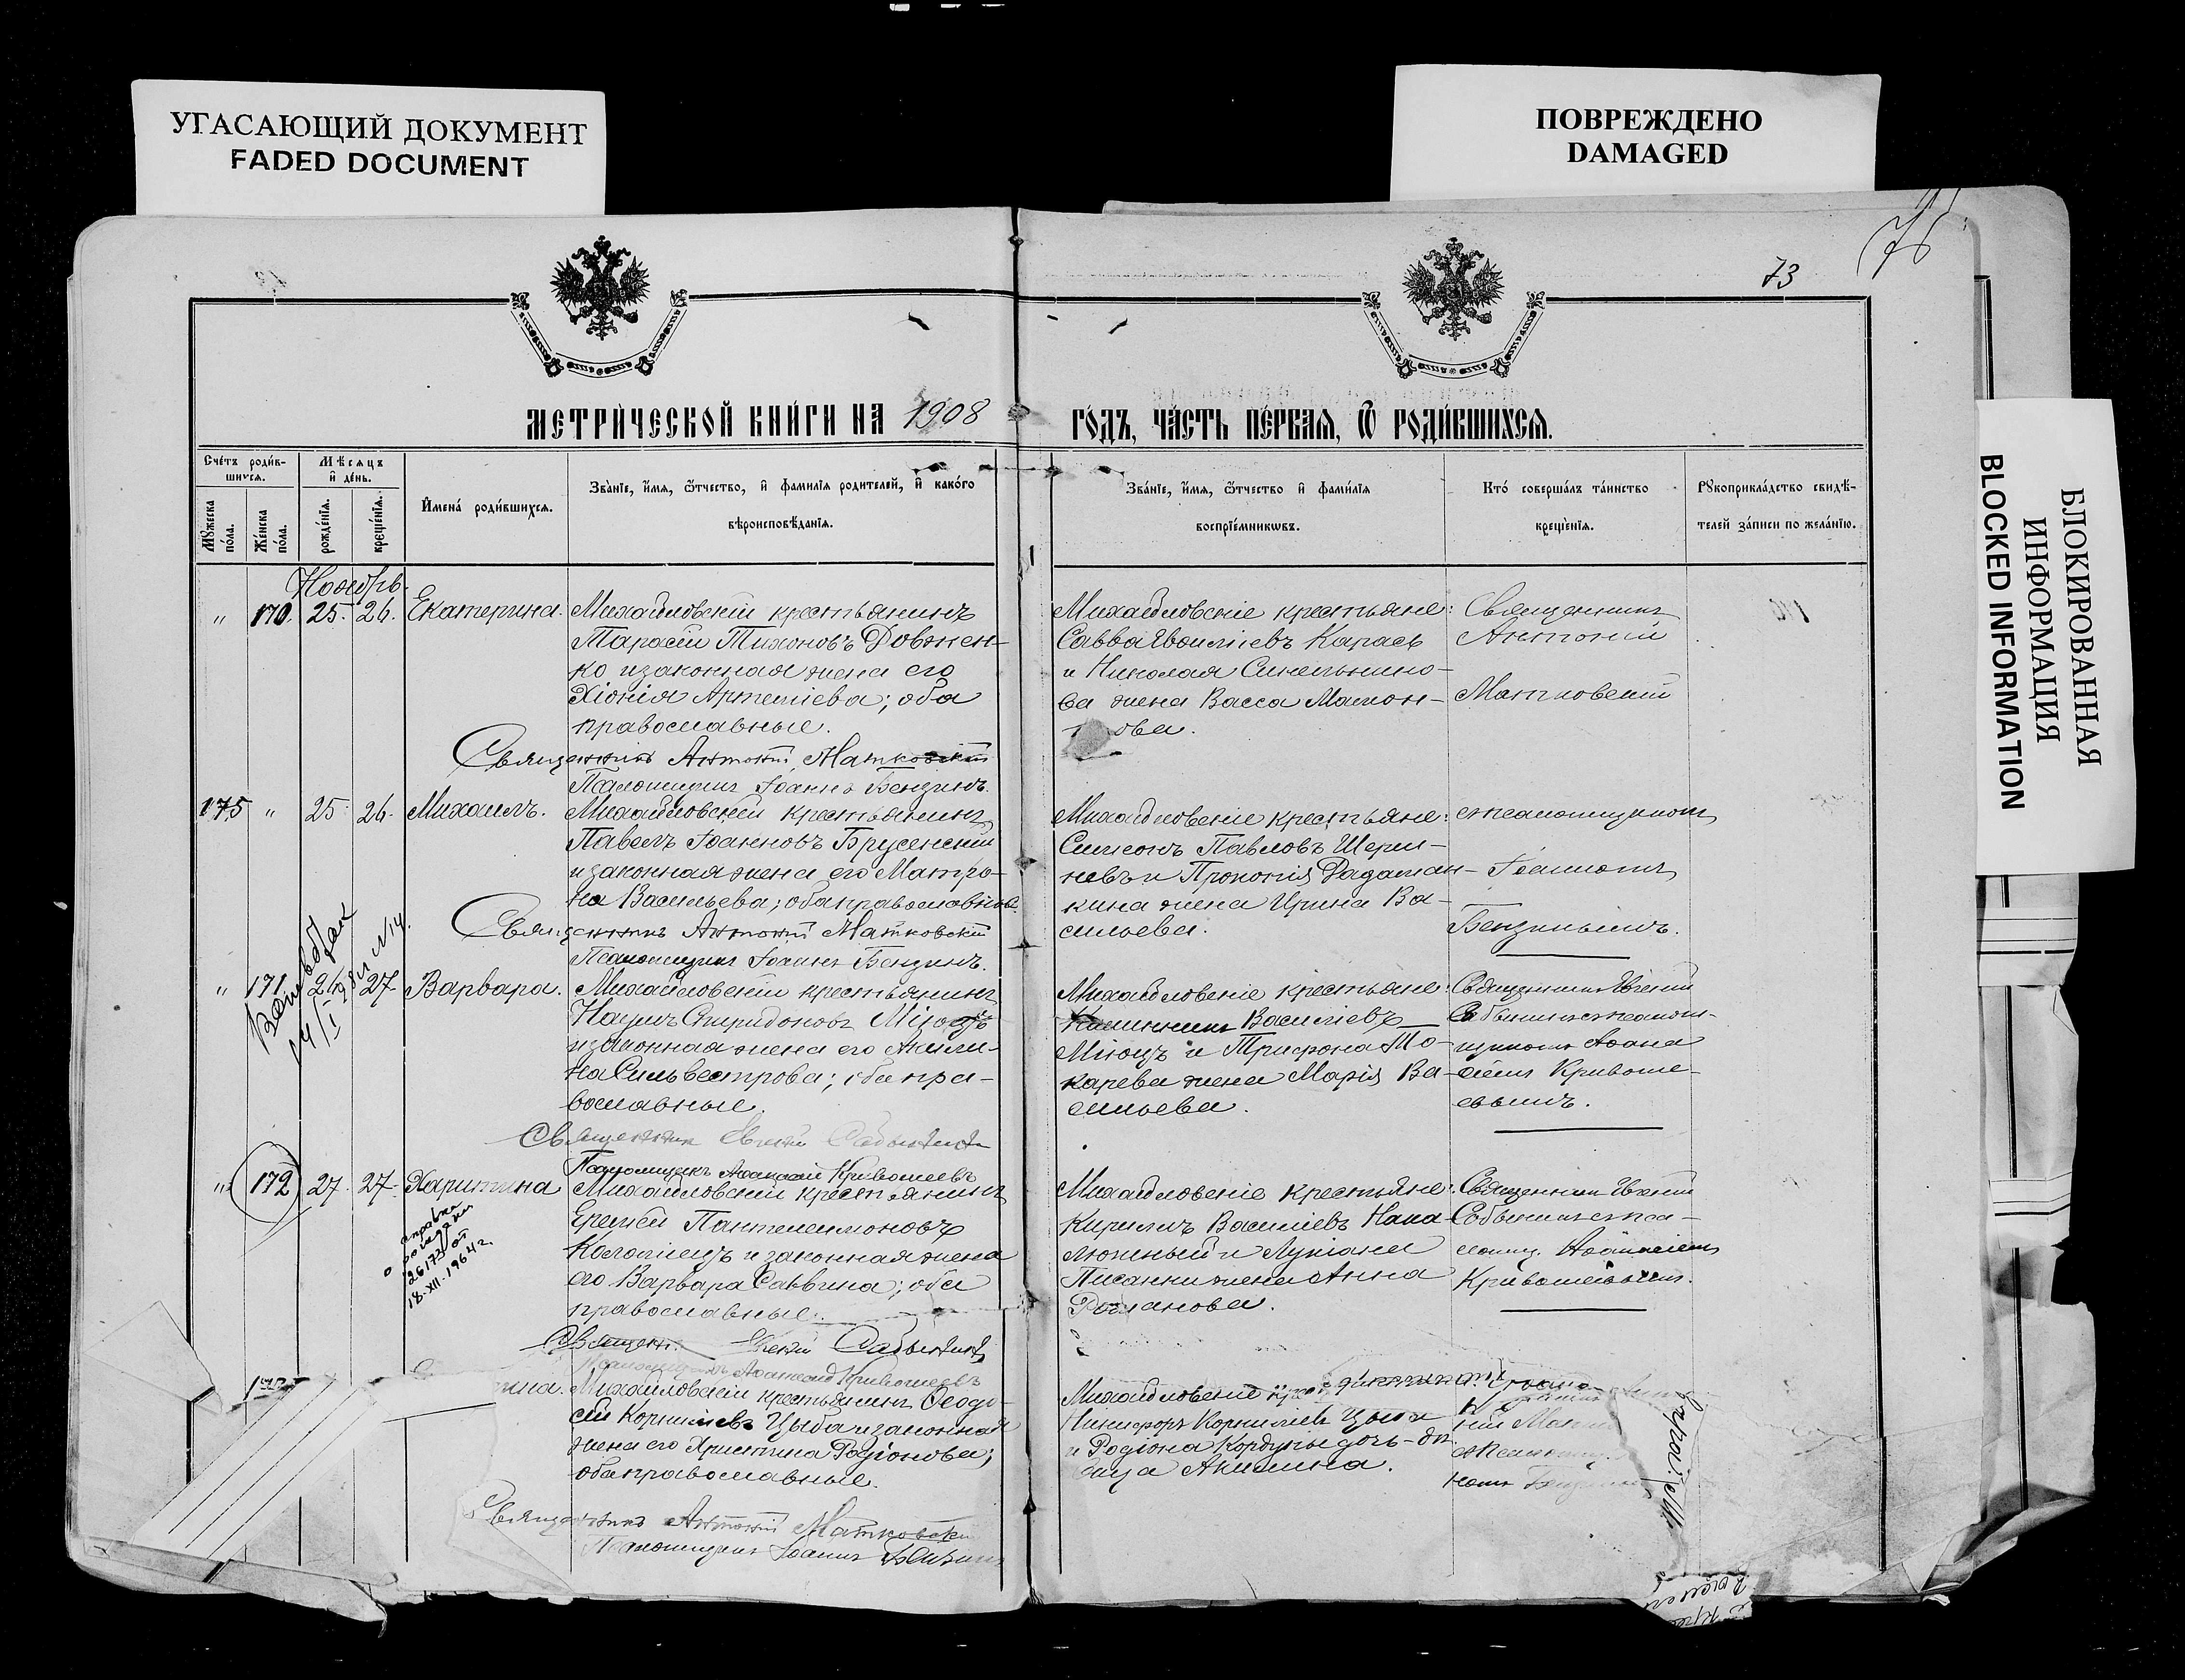 УГАСАЮЩИЙ ДОКУМЕНТ
FADED DOCUMENT
ПОВРЕЖДЕНО
DAMAGED
БЛОКИРОВАННАЯ
ИНФОРМАЦИЯ
BLOCKED INFORMATION
73
МЕТРИ́ЧЕСКОЙ КНИ́ГИ НА 1908
ГО́ДЪ, ЧА́СТЬ ПЕ́РВАЯ, Ѿ РОДИ́ВШИХСЯ.
Сче́тъ роди́в-
шихся.
Мꙋ́жеска по́ла.
Же́нска по́ла.
Мѣ́сяцъ
и̑ де́нь.
рожде́нїѧ.
креще́нїѧ.
И̑мена̀ роди́вшихсѧ.
Зва́нїе, и̑́мѧ, ѻ̑́тчество, и̑ фами́лїѧ роди́телей, и̑ како́го
вѣроисповѣ́данїѧ.
Зва́нїе, и̑́мѧ, ѻ̑́тчество и̑ фами́лїѧ
воспрїе́мникωвъ.
Кто̀ соверша́лъ та́инство
креще́нїѧ.
Рꙋкоприкла́дство свидѣ́-
телей за́писи по жела́нїю.
Ноябрь.
" 170. 25. 26. Екатерина.
Михайловскій крестьянинъ
Тарасій Тихоновъ Довжен-
ко и законная жена его
Хіонія Артеміева; оба
православные.
Священникъ Антоній Матковскій
Псаломщикъ Іоаннъ Бензинъ.
Михайловскіе крестьяне:
Савва Евоиміевъ Карась
и Николая Синельнико-
ва жена Васса Мамон-
ова.
Священникъ
Антоній
Матковскій
175 " 25. 26. Михаилъ.
Михайловскій крестьянинъ
Павелъ Іоанновъ Брусенскій
и законная жена его Матро-
на Васильева; оба православные.
Священникъ Антоній Матковскій
Псаломщикъ Іоаннъ Бензинъ.
Михайловскіе крестьяне:
Симеонъ Павловъ
и Прокопія
кина жена Ирина Ва-
сильева.
съ псаломщикомъ
Іоанномъ
Бензинымъ.
" 171. 27 Варвара.
Михайловскій крестьянинъ
Наумъ Спиридоновъ
и законная жена его Акили-
на Сильвестрова; оба пра-
вославные.
Священникъ Евгеній
Псаломщикъ Аѳанасій Кривошеевъ
Михайловскіе крестьяне:
Василіевъ
Міюцъ и Трифона То-
карева жена Марія Ва-
сильева.
Священникъ Евгеній
съ псалом-
щикомъ Аѳана-
сіемъ Кривоше-
евымъ.
" 172 27. 27. Харитина
справка
о рождении
26173 от
18-XII-1964 г.
Михайловскій крестьянинъ
Еремей Пантелеимоновъ
Коломіецъ и законная жена
его Варвара Саввина; оба
православные.
Евгеній
Псаломщикъ Аѳанасій Кривошеевъ
Михайловскіе крестьяне:
Кирилъ Василіевъ Нака-
люжный и Лукіана
Писанки жена Анна
Романова.
Священникъ Евгеній
съ пса-
ломщ. Аѳанасіемъ
Кривошеевымъ.
Михайловскій крестьянинъ Ѳеодо-
сій Корниліевъ Цыба и законная
жена его Христина Родіонова;
оба православные.
Священникъ Антоній Матковскій
Псаломщикъ Іоаннъ Бензинъ
Михайловскіе
Никифоръ Корниліевъ Цыба
и Родіона Кордупы дочь - дѣ-
вица Акилина.